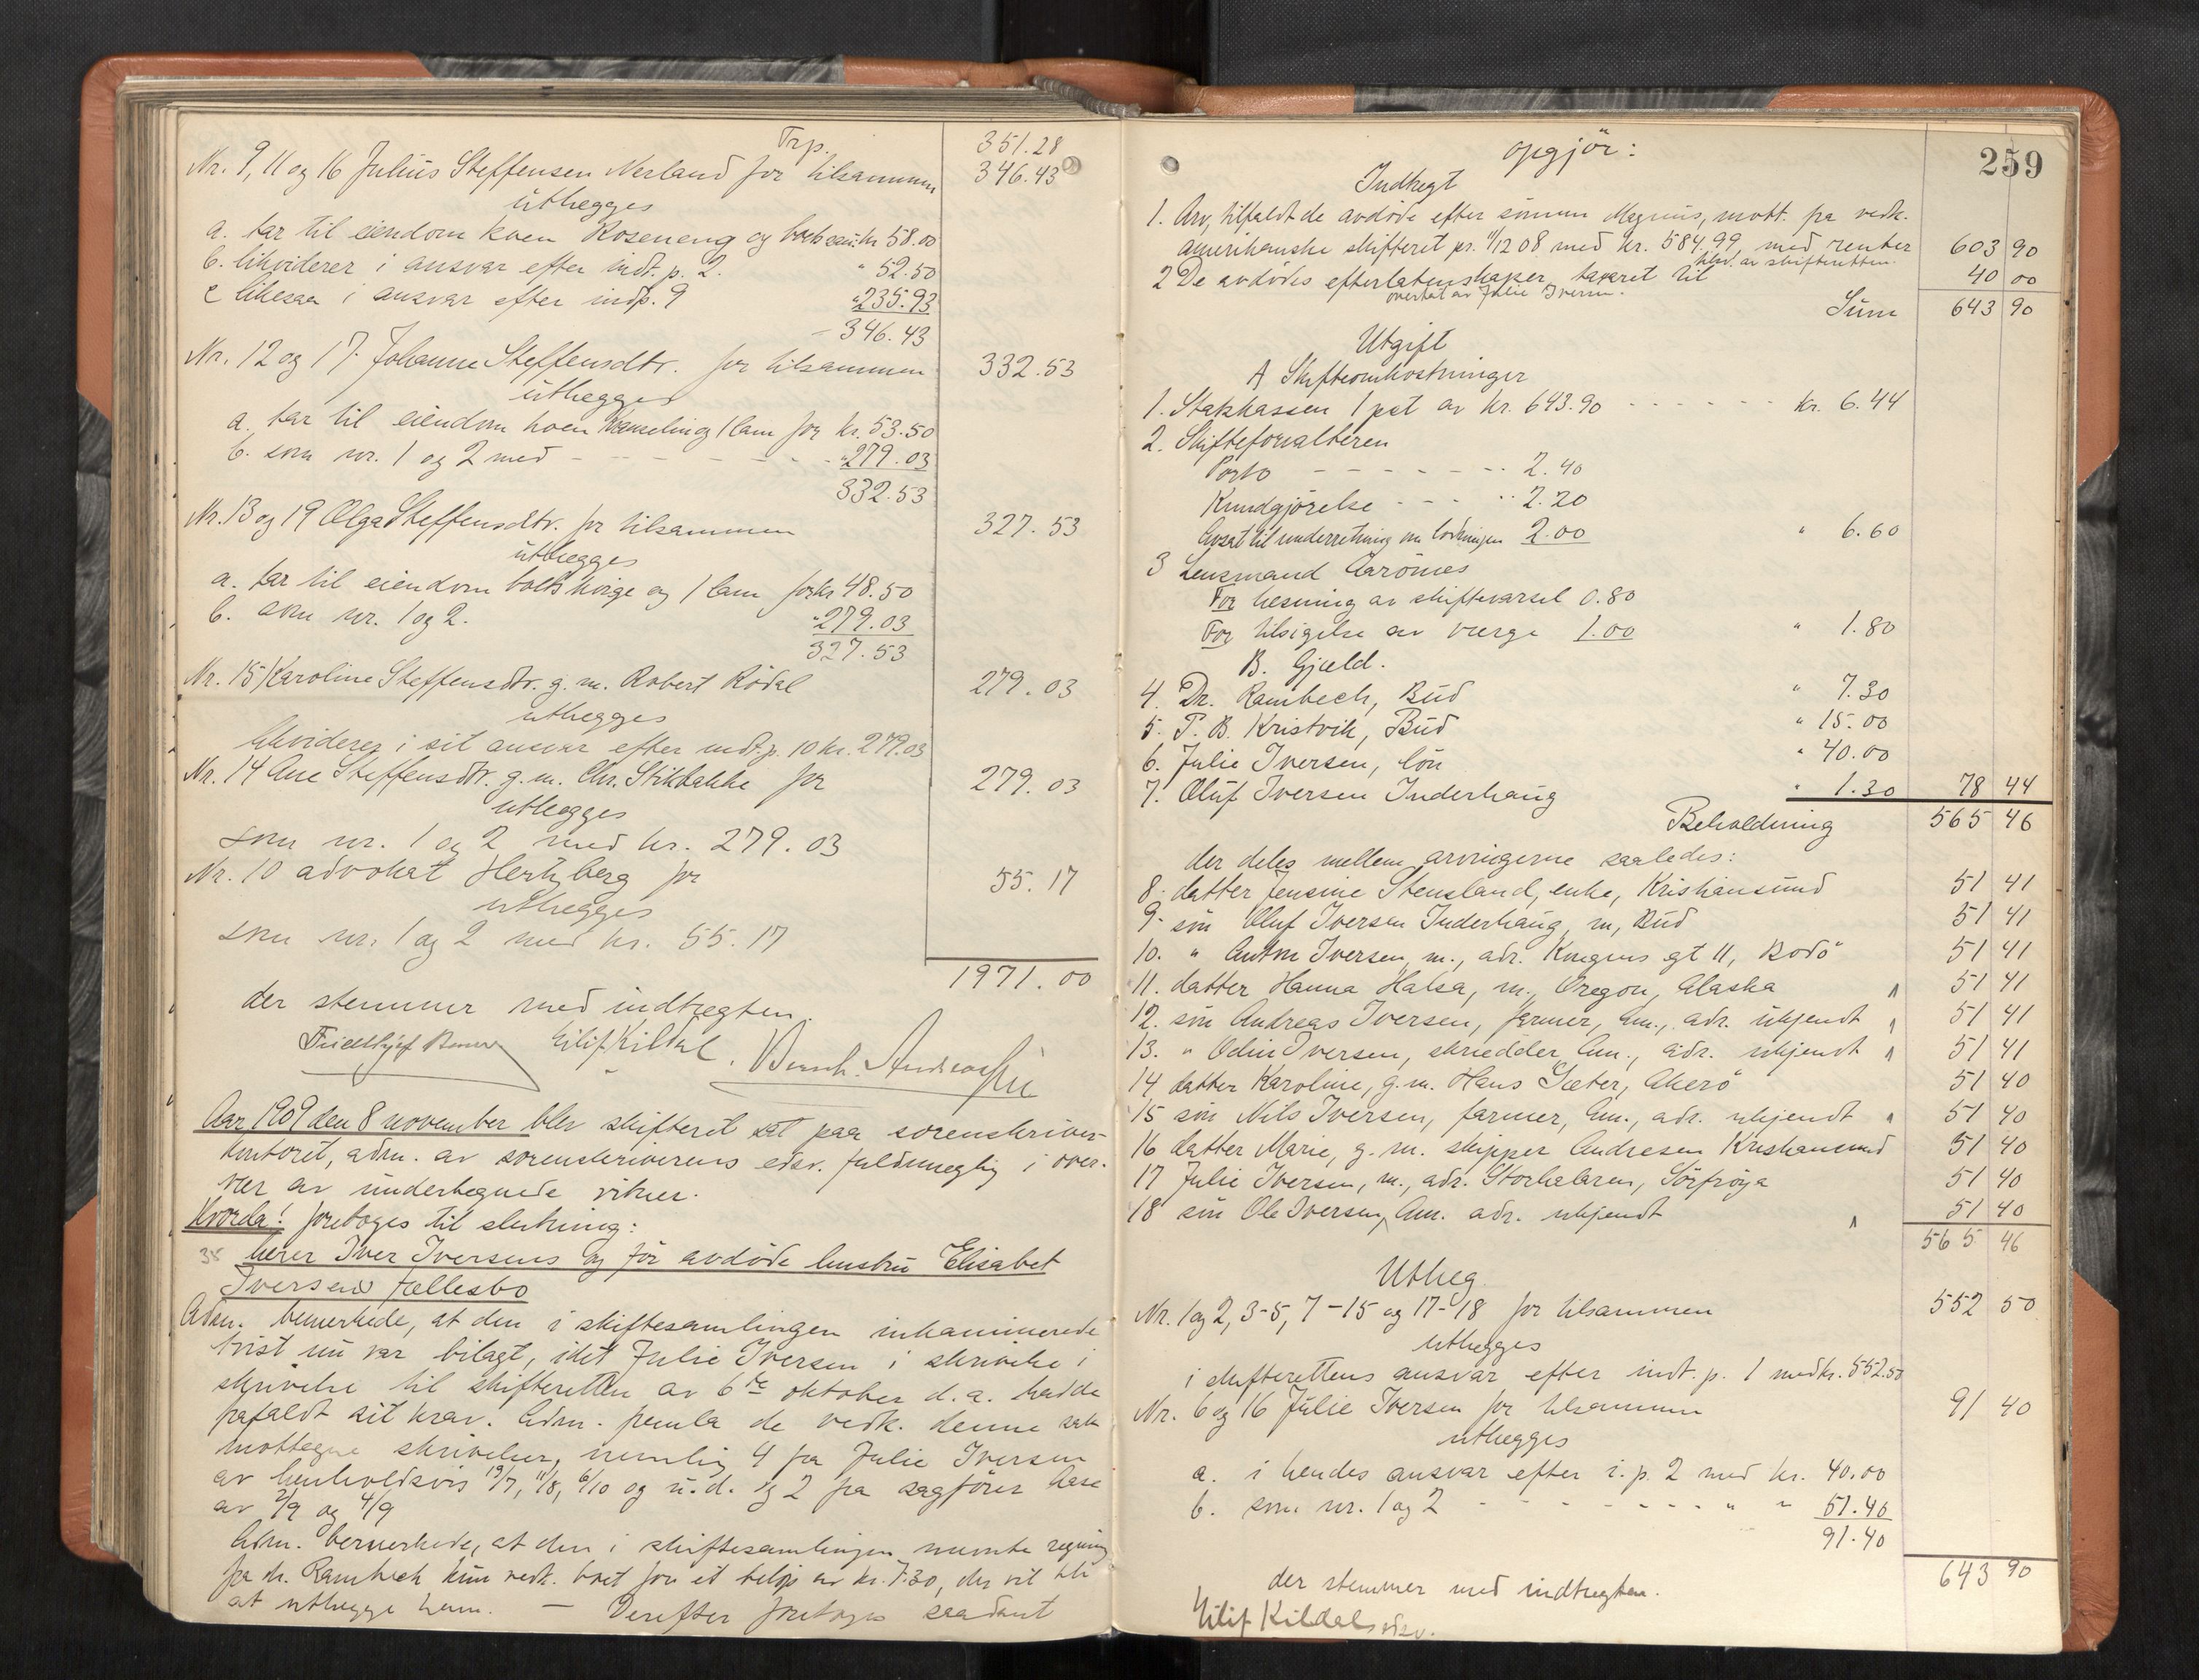 Trp. 351.28
Nr. 9, 11 og 16 Julius Steffensen Nerland for tilsammen 346.43
utlægges
a. tar til eiendom koen Roseneng og kr 58.00
b. likviderer i ansvar efter indt. p. 2. " 52.50
c likesaa i ansvar efter indt. p. 9 " 235.93
346.43
Nr. 12 og 17. Johanne Steffensdtr. for tilsammen 332.53
utlægges
a. tar til eiendom koen og 1 lam for kr. 53.50
b. som nr. 1 og 2 med - - - - - - " 279.03
332.53
Nr. 13 og 19 Olga Steffensdtr. for tilsammen 327.53
utlægges
a. tar til eiendom kvige og 1 lam for kr 48.50
b. som nr. 1 og 2. " 279.03
327.53
Nr. 15 Karoline Steffensdtr. g. m. Robert Rödal 279.03
utlægges
likviderer i sit ansvar efter indt. p. 10 kr. 279.03
Nr. 14 Ane Steffensdtr. g. m. Chr. Stikbakke for 279.03
utlægges
som nr. 1 og 2 med kr. 279.03
Nr. 10 advokat Hertzberg for 55.17
utlægges
som nr. 1 og 2 med kr. 55.17
1971.00
der stemmer med indtægten.
Eilif Kildal. Bernh.
Aar 1909 den 8 november blev skifteret sat paa sorenskriver-
kontoret, adm. av sorenskriverens edsv. fuldmægtig i over-
vær av undertegnede vitner.
Hvorda! foretoges til slutning:
38 Iver Iversens og før avdøde hustru Elisabet
Iversens fællesbo
Adm. bemerkede, at den i skiftesamlingen
tvist nu var bilagt, idet Julie Iversen i skrivelse i
skrivelse til skifteretten av 6te oktober d. a. hadde
frafaldt sit krav. Adm. fremla de vedk. denne sak
mottagne skrivelser, nemlig 4 fra Julie Iversen
av henholdsvis 19/7, 11/8, 6/10 og u. d. og 2 fra sagfører Aase
av 2/9 og 4/9
Adm. bemerkede, at den i skiftesamlingen nævnte regning
fra dr. Rambech kun vedk. boet for et beløp av kr. 7.30, der vil bli
at utlægge ham. — Derefter foretoges saadant
259
opgjör:
Indtægt
1. Arv, tilfaldt de avdöde efter sönnen Magnus, mott. fra vedk.
amerikanske skifteret pr. 11/12 08 med kr. 584.99, med renter 603 90
2 De avdödes efterlatenskaper, taxeret til 40 00
overtat av Julie Iversen.
Sum 643 90
Utgift
A Skifteomkostninger
1. Statskassen 1 pct av kr. 643.90 - - - - - - kr. 6.44
2. Skifteforvalteren
Porto - - - - - - - 2.40
Kundgjörelse - - - - 2.20
Avsat til underretning om lodningen 2.00 " 6.60
3 Lensmand Aarönes
For læsning av skiftevarsel 0.80
For tilsigelse av værge 1.00 " 1.80
B. Gjæld.
4. Dr. Rambech, Bud " 7.30
5. P. B. Kristvik, Bud " 15.00
6. Julie Iversen, lön " 40.00
7. Oluf Iversen Inderhaug " 1.30 78 44
Beholdning 565 46
der deles mellem arvingerne saaledes:
8. datter Jensine Stensland, enke, Kristiansund 51 41
9. sön Oluf Iversen Inderhaug, m, Bud 51 41
10. " Anton Iversen, m., adr. Kongens gt 11, Bodö 51 41
11. datter Hanna Halsa, m., Oregon, Alaska 51 41
12. sön Andreas Iversen, farmer, Am., adr. ukjendt 51 41
13. " Odin Iversen, skrædder, Am., adr. ukjendt 51 41
14 datter Karoline, g. m. Hans Sæter, Akerö 51 40
15 sön Nils Iversen, farmer, Am., adr. ukjendt 51 40
16 datter Marie, g. m. skipper Andresen Kristiansund 51 40
17 Julie Iversen, m., adr. Storhalaren, Sörfröya 51 40
18 sön Ole Iversen, Am. adr. ukjendt 51 40
565 46
Utlæg.
Nr. 1 og 2, 3-5, 7-15 og 17-18 for tilsammen 552 50
utlægges
i skifterettens ansvar efter indt. p. 1 med kr. 552.50
Nr. 6 og 16 Julie Iversen for tilsammen 91 40
utlægges
a. i hendes ansvar efter i. p. 2 med kr. 40.00
b. som nr. 1 og 2 - - - - - - " " 51.40
91.40
643 90
der stemmer med indtægten.
Eilif Kildal, edsv.